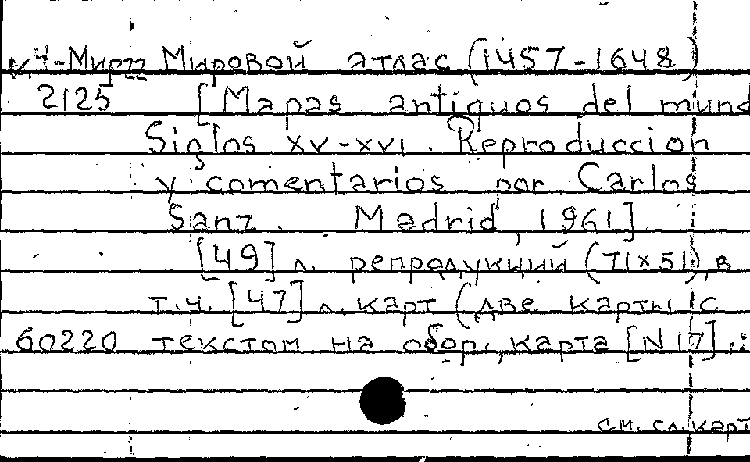 К4-Мир22 Мировой атлас (1457-1648)
2125 [Mapas antiguos del mund
Siglos XV-XVI. Reproduccion
y comentarios por Carlos
Sanz. Madrid, 1961]
[49] л. репродукций (71×51), в
т.ч. [47] л. карт (две карты с
60220 текстом на обор., карта [N 17] :
см. сл. карт